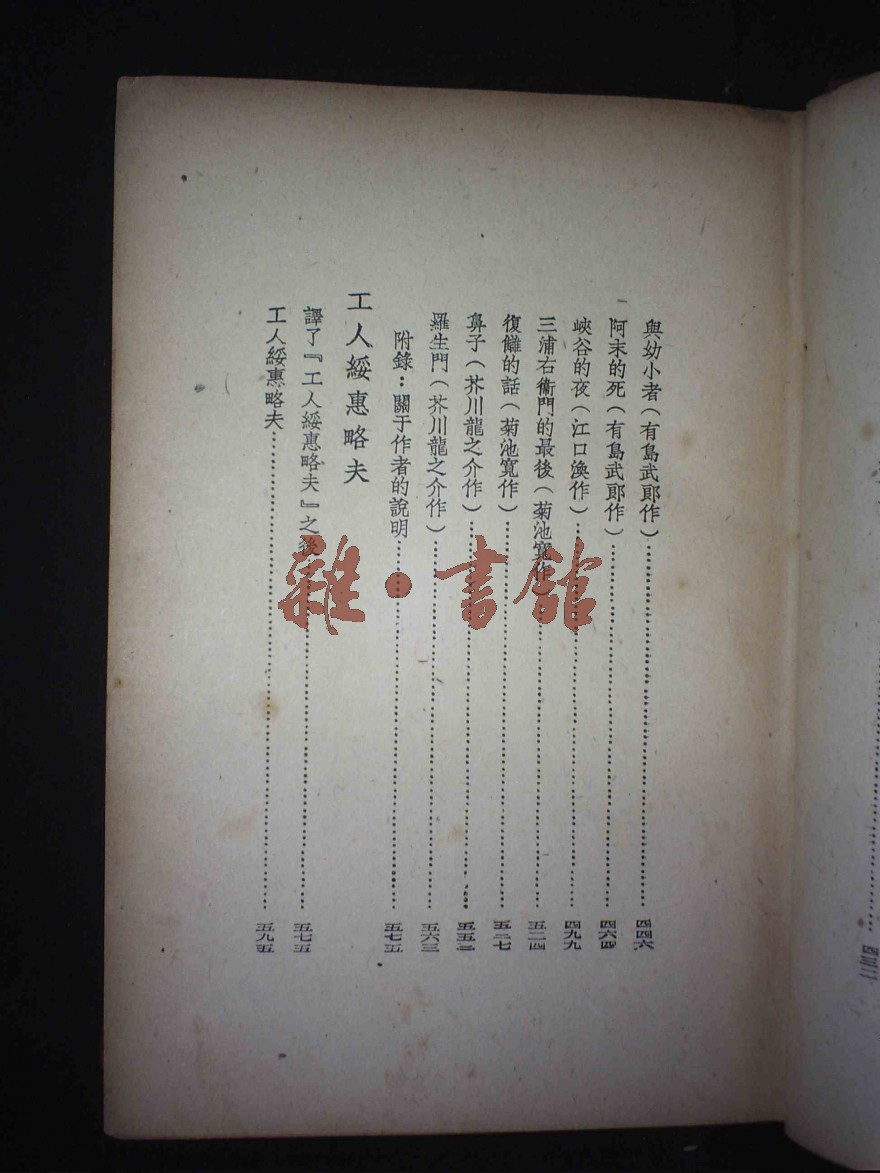 與幼小者（有島武郎作）……四四六
阿末的死（有島武郎作）……四六四
峽谷的夜（江口渙作）……四九九
三浦右衞門的最後（菊池寬作）……五一四
復讎的話（菊池寬作）……五二七
鼻子（芥川龍之介作）……五五二
羅生門（芥川龍之介作）……五六三
附錄：關于作者的說明……五七五
工人綏惠略夫
譯了『工人綏惠略夫』之後……五七五
工人綏惠略夫……五九五
雜·書館